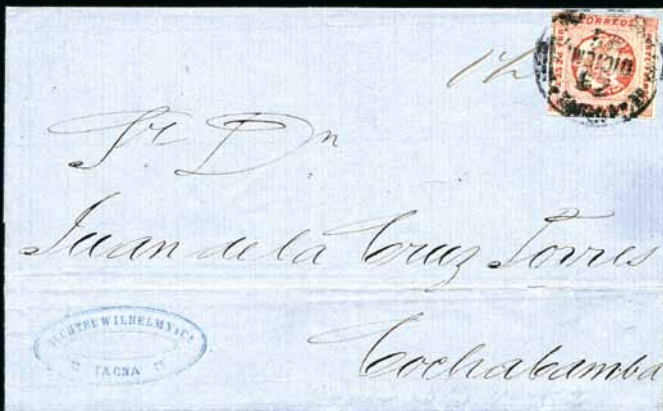 CORREOS
DICIEM
23
Sr. Dn
Juan de la Cruz Torres
Cochabamba
WILHELMY & Ca
TACNA